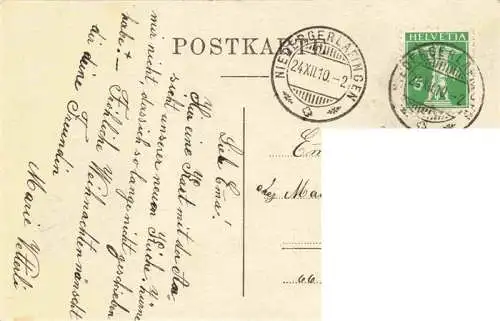 POSTKARTE
NIEDERGERLAFINGEN
24.XII.10.-2
HELVETIA
5
NIEDERGERLAFINGEN
Lieb Emma!
Hier eine Kart mit der An-
sicht unserer neuen Kirche, zürne
mir nicht, dass ich so lange nicht geschrieben
habe. Fröhliche Weihnachten wünscht
dir deine Freundin
Marie Vetterli
Em
chez Ma